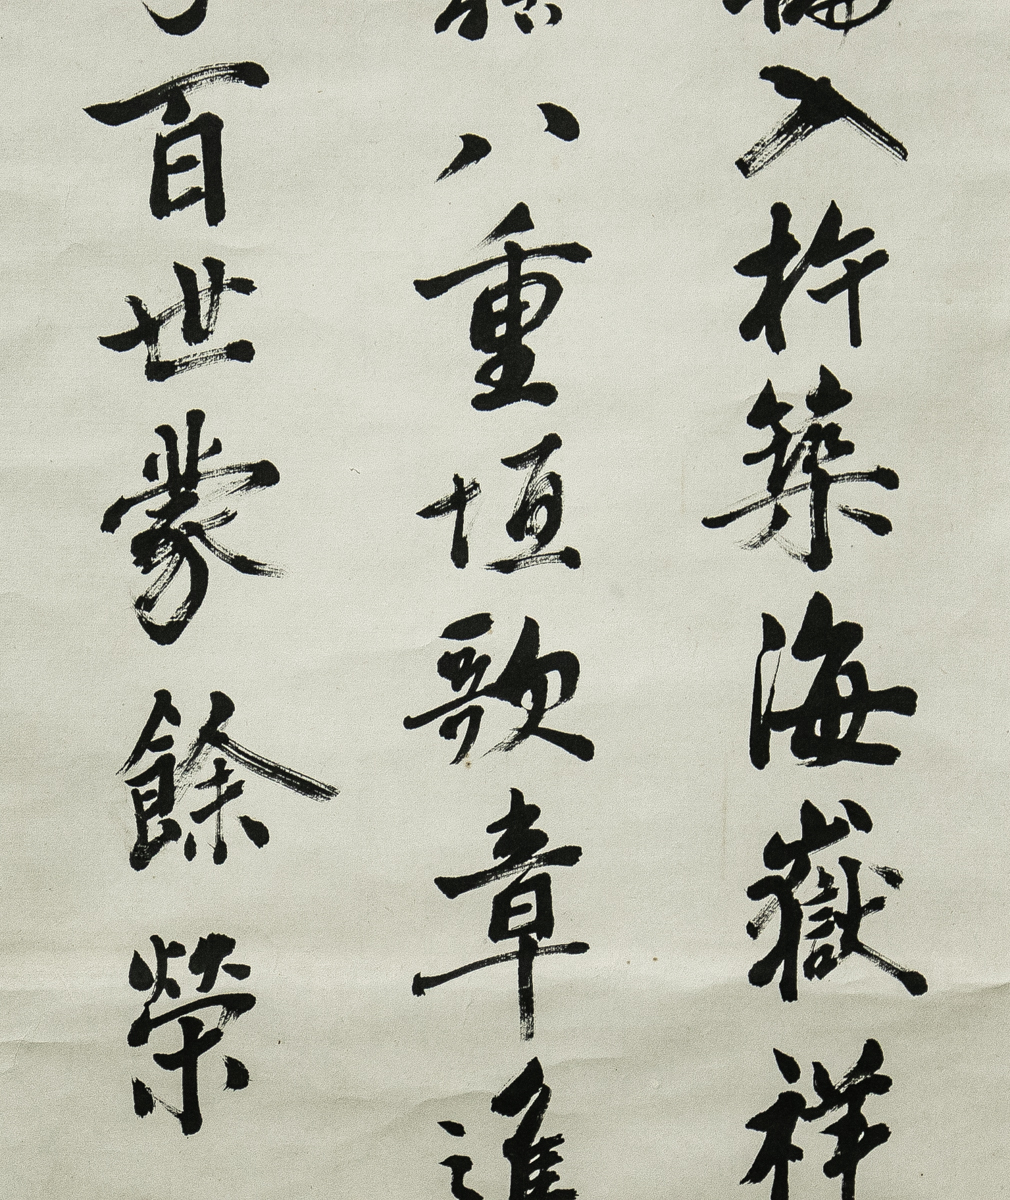 入杵築海嶽祥
八重垣歌章進
百世蒙餘榮